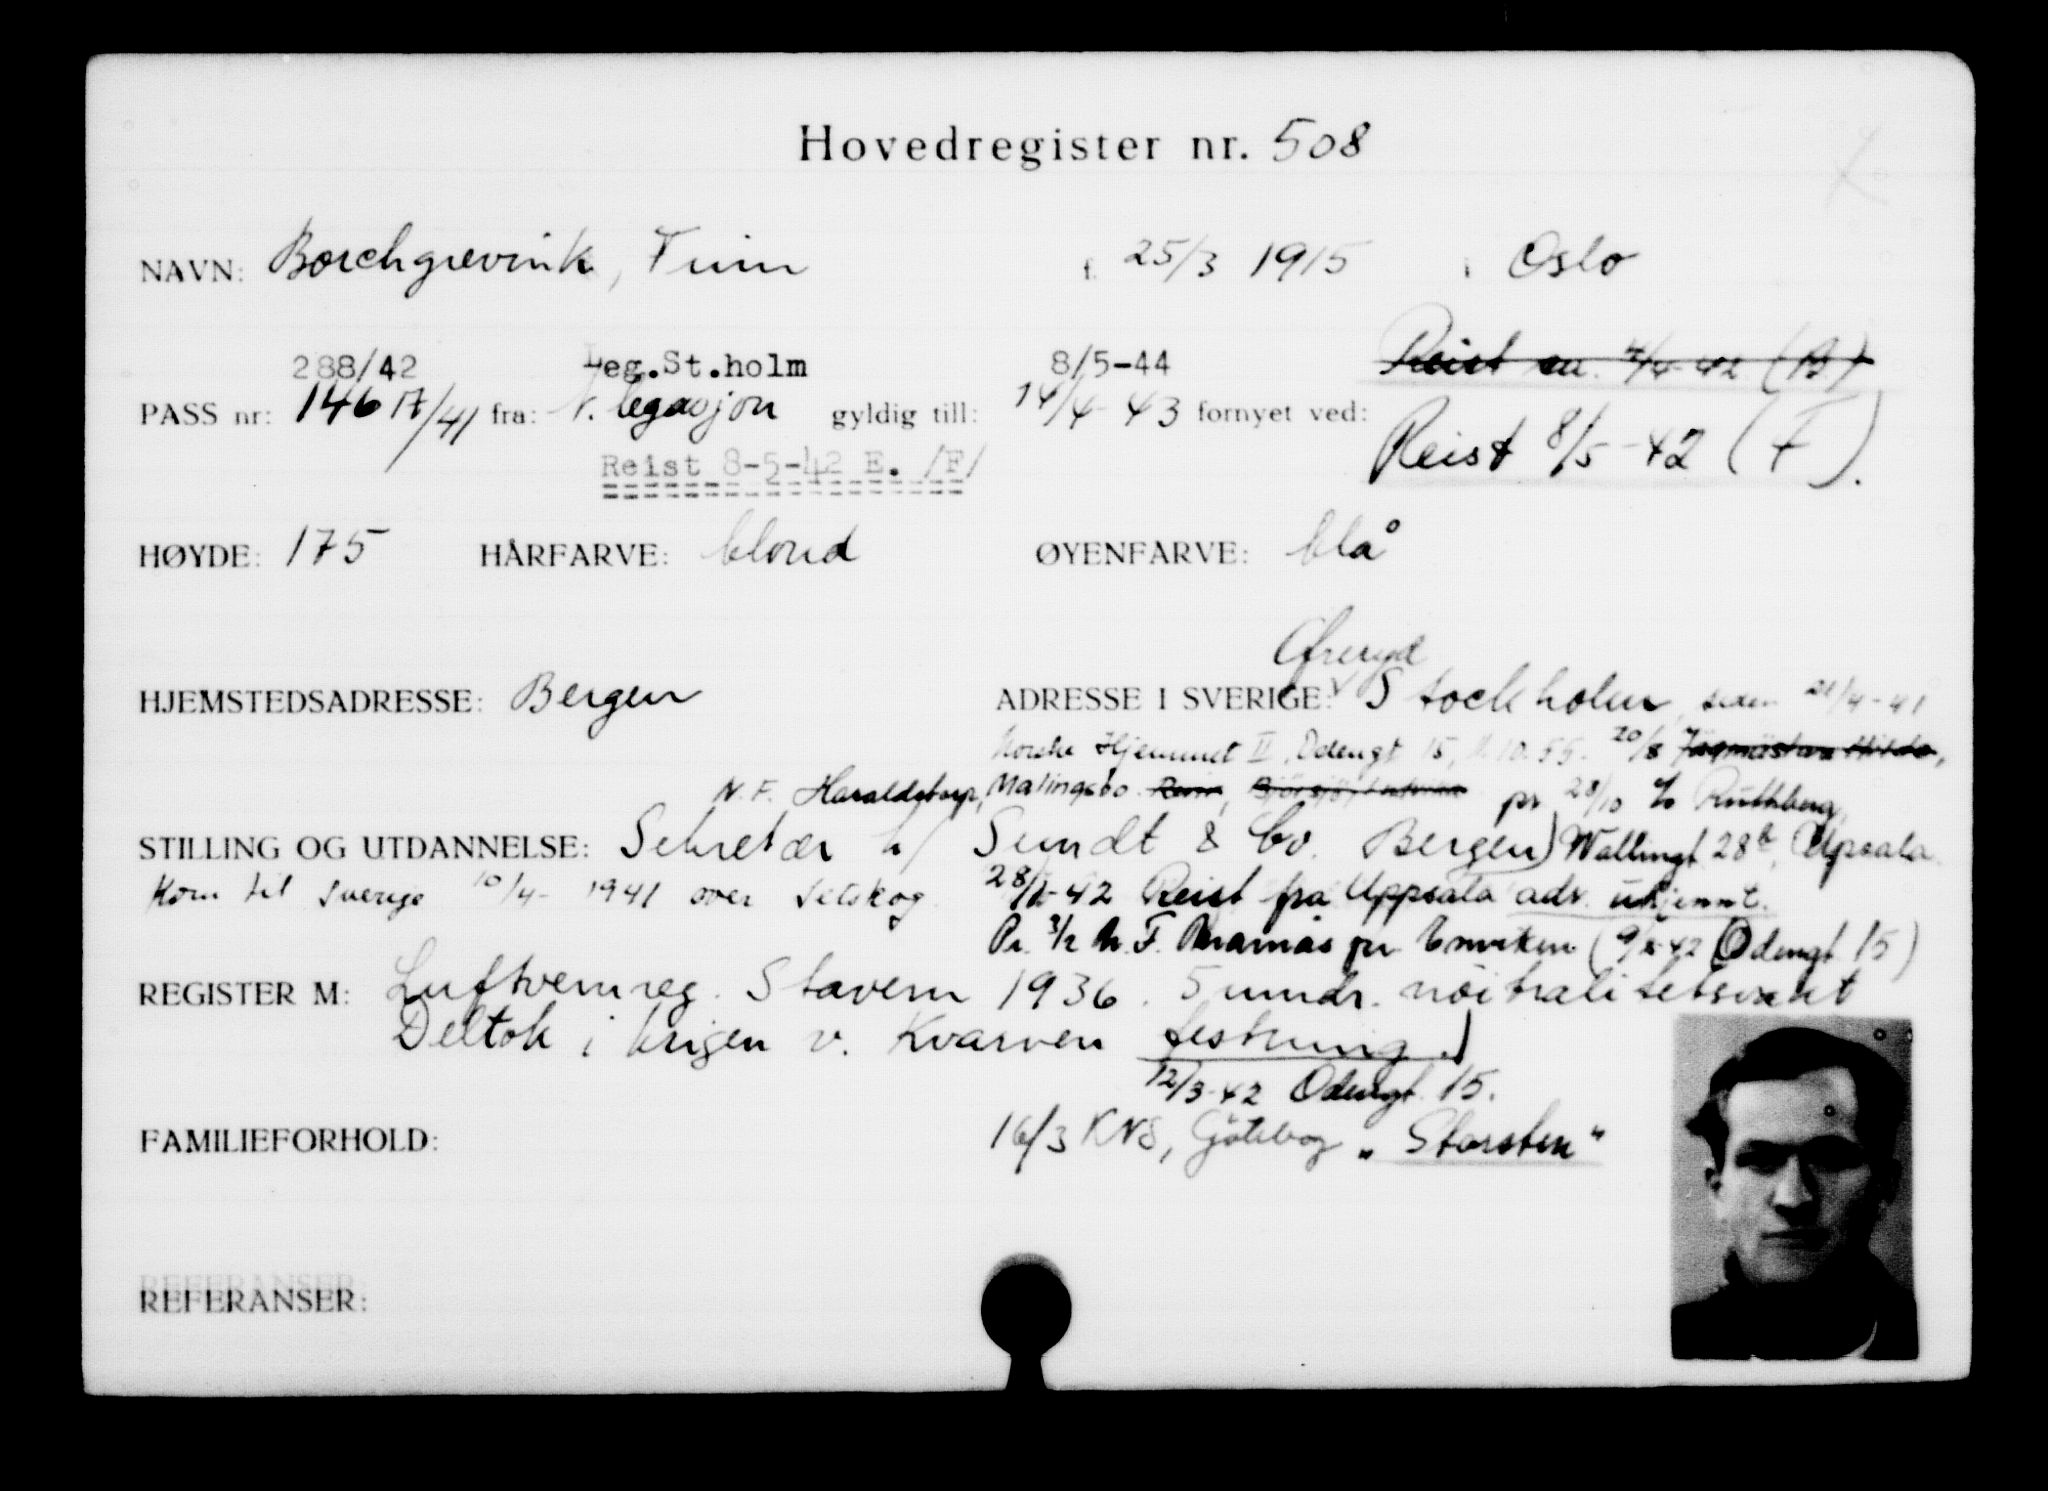 Hovedregister nr. 508
NAVN: Borchgrevink, Finn f. 25/3 1915 i Oslo
288/42 Leg.St.holm 8/5-44 Reist 7/4-42 (B)
PASS nr: 14617/41 fra: N. legasjon gyldig till: 14/4-43 fornyet ved:
Reist 8/5-42 (F).
Reist 8-5-42 E. /F/
HØYDE: 175 HÅRFARVE: blond ØYENFARVE: blå
Öreryd
HJEMSTEDSADRESSE: Bergen ADRESSE I SVERIGE: Stockholm, siden 21/4-41
Norske Hjemmet II, Odengt 15, 20/8 Jägmästare
N.F. Haraldstorp, Malingsbo pr 28/10 c/o Ruthberg,
STILLING OG UTDANNELSE: Sekretær h/ Sundt & Co. Bergen) Wallingt 28b, Upsala
Kom til Sverige 10/4-1941 over Setskog 28/1-42 Reist fra Uppsala adr. ukjennt.
Pr. 3/2 N.F. pr Enviken (9/2-42 Odengt 15)
REGISTER M: Luftvernreg. Stavern 1936. 5 mndr. nöitralitetsvakt
Deltok i krigen v. Kvarven festning.)
12/3-42 Odengt 15.
16/3 KNS, Göteborg "Storsten"
FAMILIEFORHOLD:
REFERANSER: